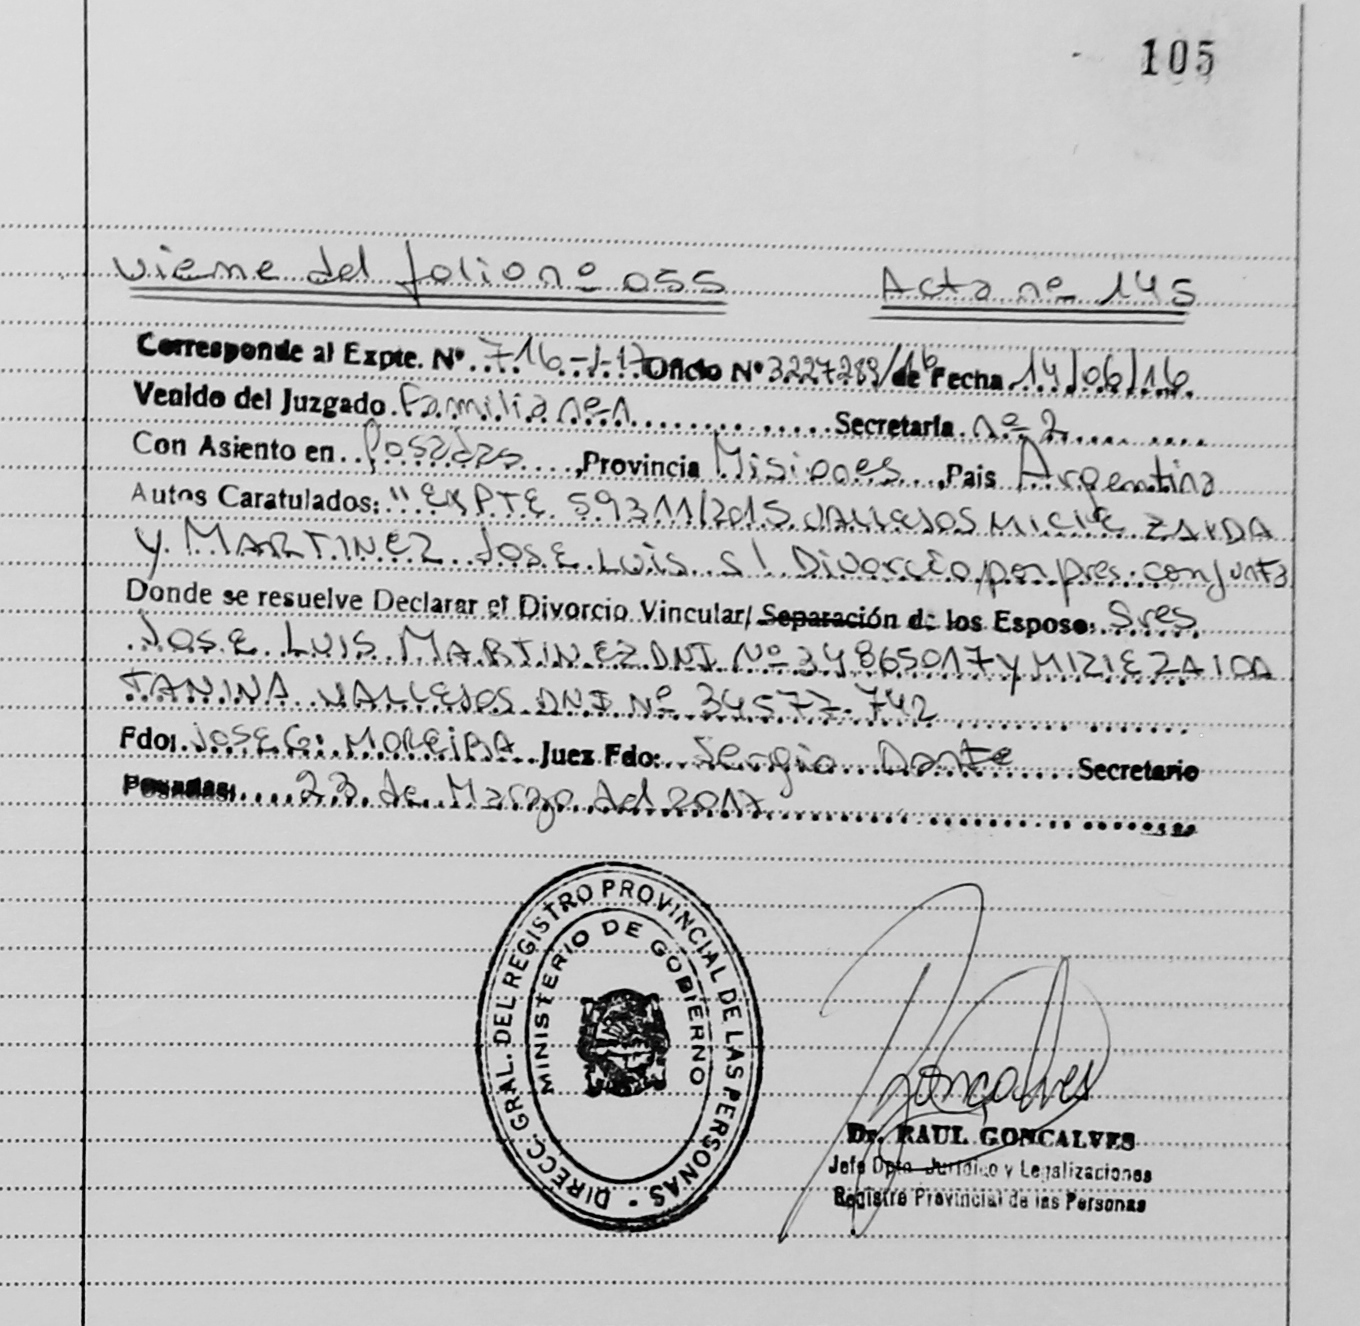 105
viene del folio nº 055 Acta nº 145
Corresponde al Expte. Nº 716-J-17 Oficio Nº 3227289/16 de Fecha 14/06/16
Venido del Juzgado Familia nº 1 Secretaría nº 2
Con Asiento en Posadas, Provincia Misiones, País Argentina
Autos Caratulados: "EXPTE 59311/2015 VALLEJOS MICIE ZAIDA
Y MARTINEZ JOSE LUIS s/ Divorcio por pres. conjunta
Donde se resuelve Declarar el Divorcio Vincular/ Separación de los Esposos: Sres
JOSE LUIS MARTINEZ DNI Nº 34865017 y MIZIE ZAIDA
TANINA VALLEJOS DNI Nº 34577.742
Fdo: JOSE G. MOREIRA Juez Fdo: Sergio Dante Secretario
Posadas: 23 de Marzo del 2017
DIRECC. GRAL. DEL REGISTRO PROVINCIAL DE LAS PERSONAS -
MINISTERIO DE GOBIERNO
Gonçalves
Dr. RAUL GONCALVES
Jefe Dpto. Jurídico y Legalizaciones
Registro Provincial de las Personas